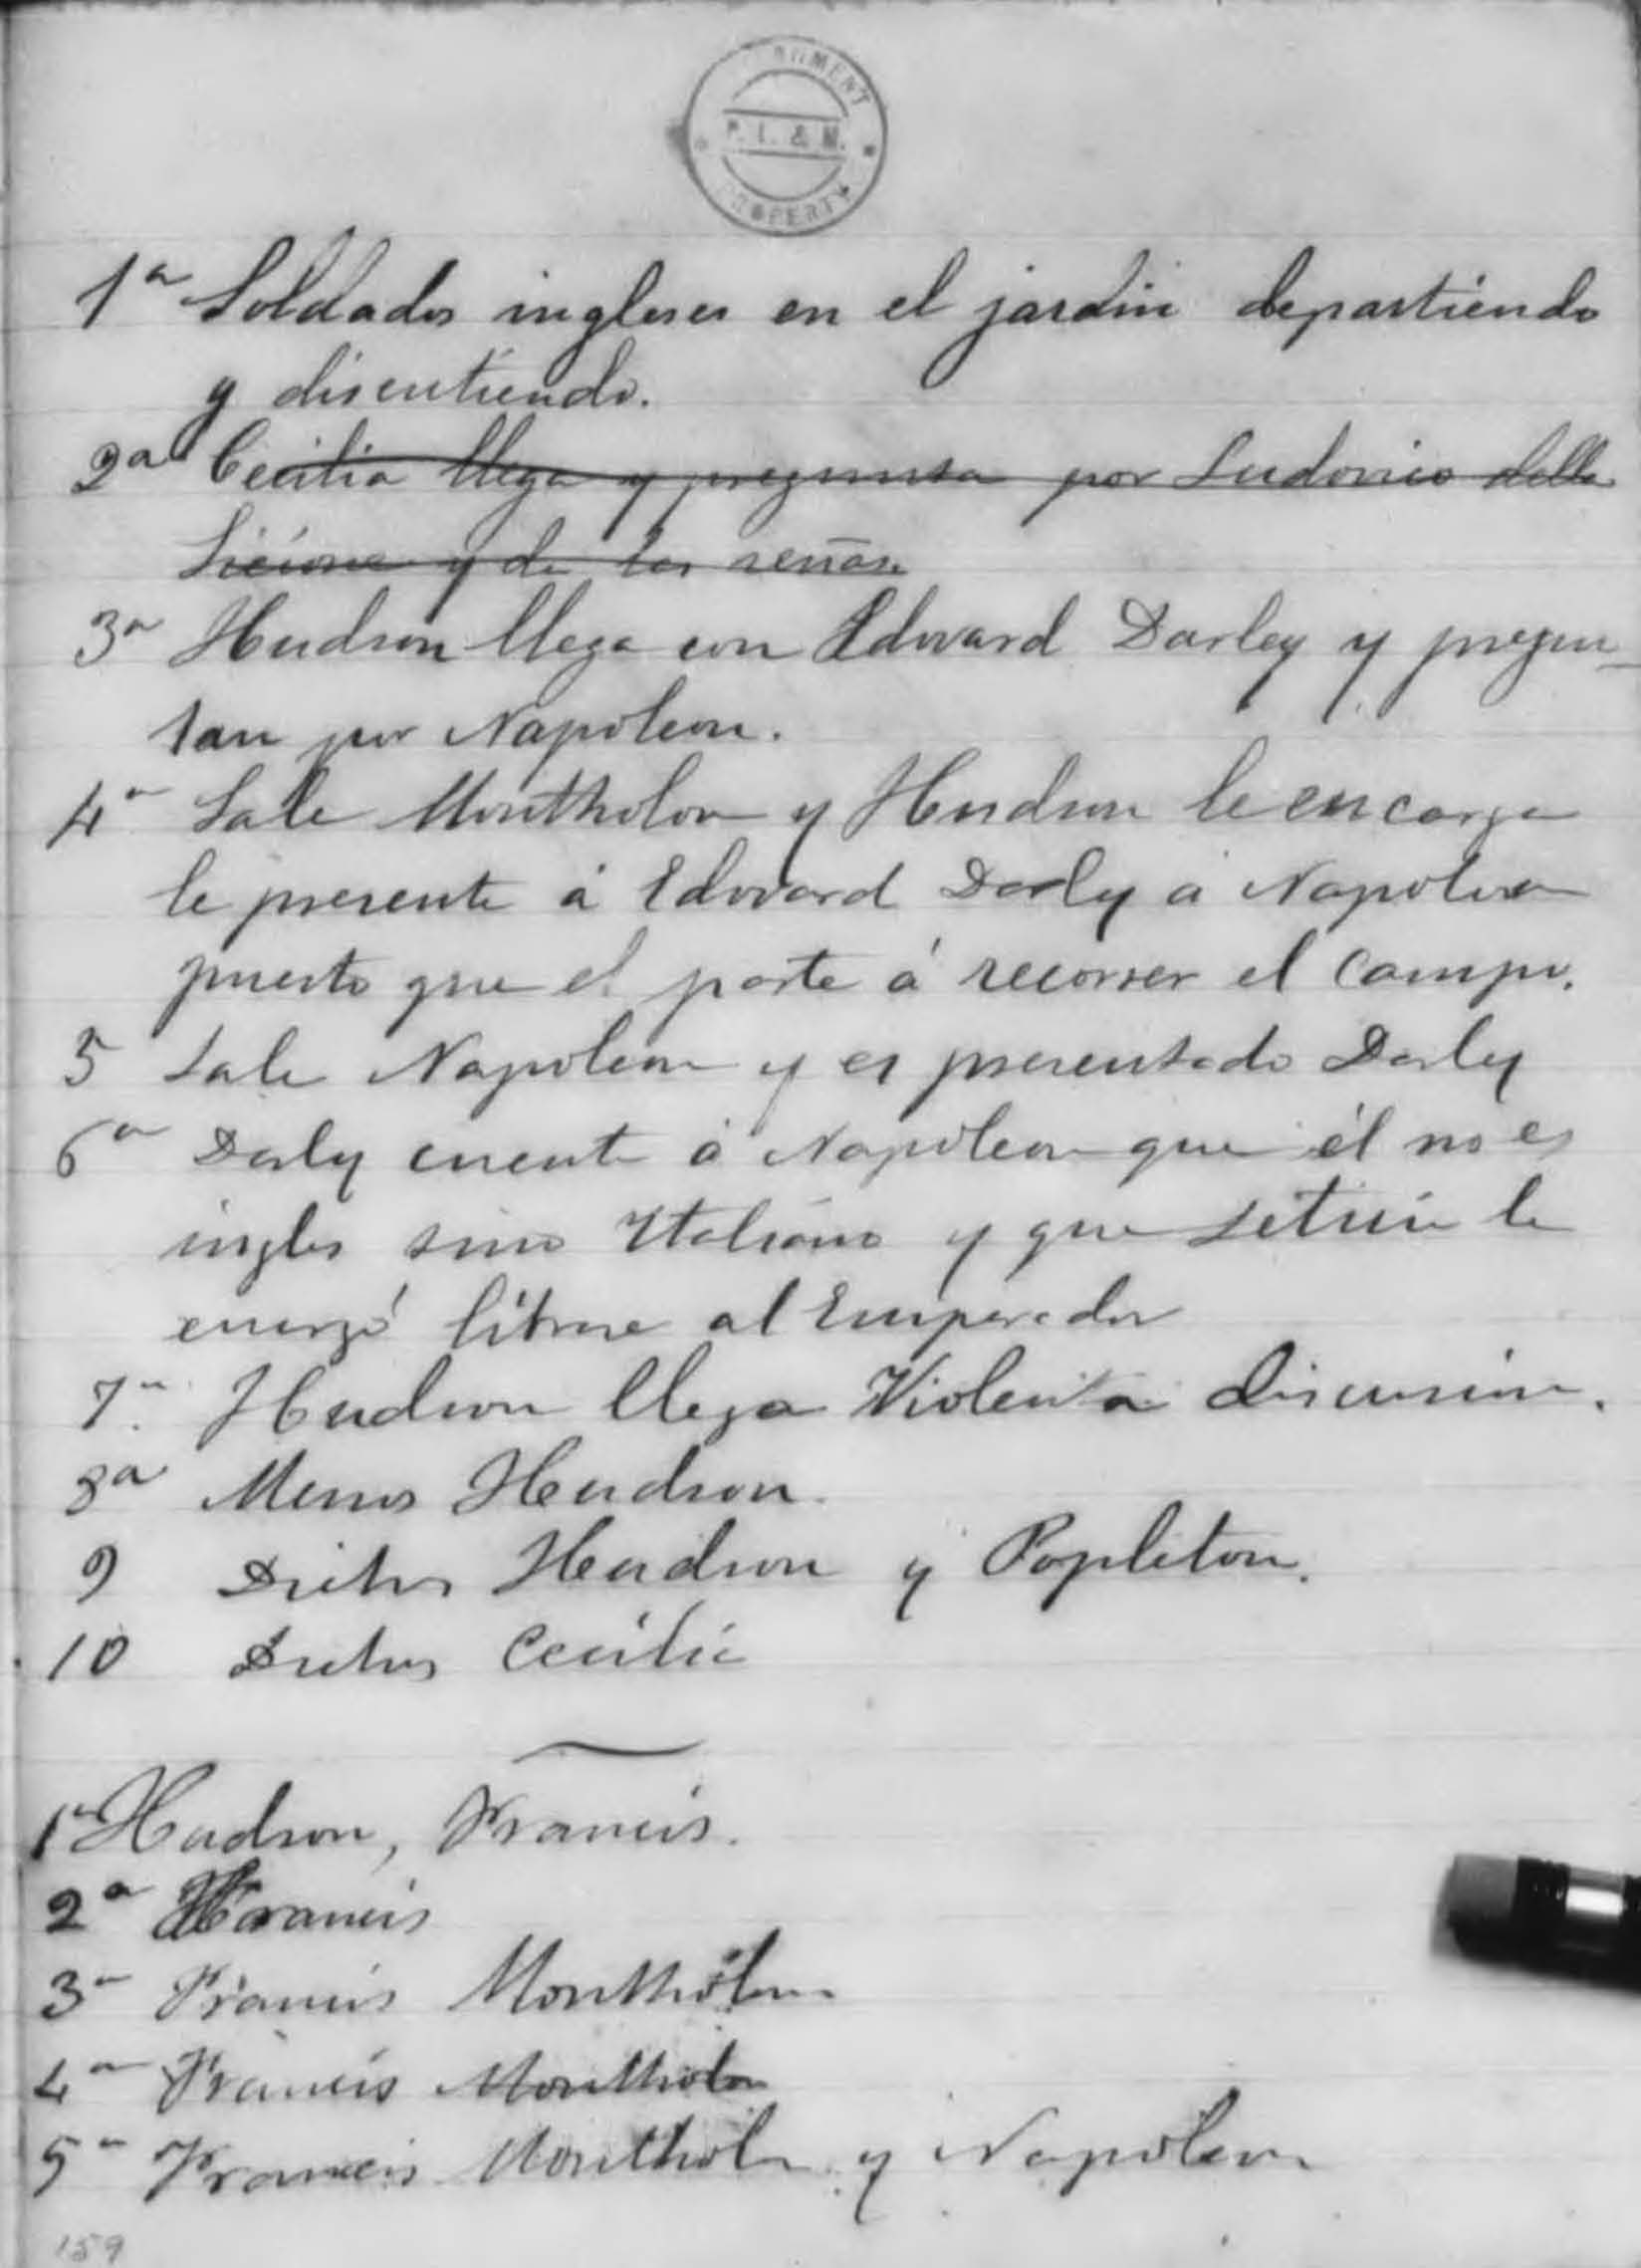 P. I. & M.
PROPERTY
1a Soldados ingleses en el jardin departiendo
y discutiendo.
2a Cecilia llega y pregunta por Ludovico della
y de las señas
3a Hudson llega con Edward Darley y pregun-
tan por Napoleon.
4a Sale Montholon y Hudson le encarga
le presente á Edward Darly a Napoleon
puesto que el parte á recorrer el campo.
5 Sale Napoleon y es presentado Darley
6a Darly cuenta á Napoleon que él no es
ingles sino Italiano y que le
al Emperador
7a Hudson llega Violenta discusion.
8a Menos Hudson
9 Dichos Hudson y Popleton.
10 Dichos Cecilia
1a Hudson, Francis.
2a Francis
3a Francis Montholon
4a Francis Montholon
5a Francis Montholon y Napoleon
159